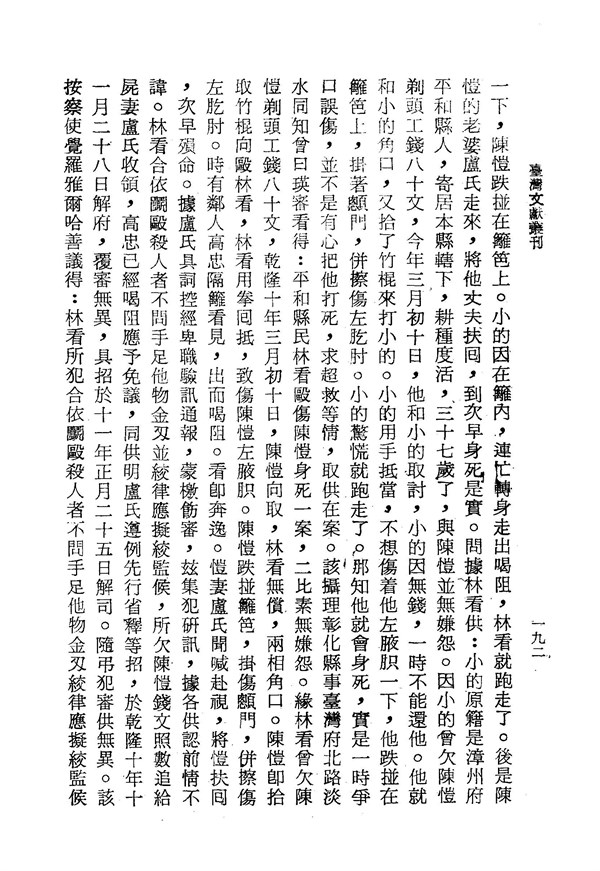 臺灣文獻叢刊
一九二
一下，陳愷跌掽在籬笆上。小的因在籬內，連忙轉身走出喝阻，林看就跑走了。後是陳
愷的老婆盧氏走來，將他丈夫扶囘，到次早身死是實。問據林看供：小的原籍是漳州府
平和縣人，寄居本縣轄下，耕種度活，三十七歲了，與陳愷並無嫌怨。因小的曾欠陳愷
剃頭工錢八十文，今年三月初十日，他和小的取討，小的因無錢，一時不能還他。他就
和小的角口，又拾了竹棍來打小的。小的用手抵當，不想傷着他左腋胑一下，他跌掽在
籬笆上，掛著顖門，併擦傷左肐肘。小的驚慌就跑走了。那知他就會身死，實是一時爭
口誤傷，並不是有心把他打死，求超救等情，取供在案。該攝理彰化縣事臺灣府北路淡
水同知曾曰瑛審看得：平和縣民林看毆傷陳愷身死一案，二比素無嫌怨。緣林看曾欠陳
愷剃頭工錢八十文，乾隆十年三月初十日，陳愷向取，林看無償，兩相角口。陳愷卽拾
取竹棍向毆林看，林看用拳囘抵，致傷陳愷左腋胑。陳愷跌掽籬笆，掛傷顖門，併擦傷
左肐肘。時有鄰人高忠隔籬看見，出而喝阻。看卽奔逸。愷妻盧氏聞喊赴視，將愷扶囘
，次早殞命。據盧氏具詞控經卑職驗訊通報，蒙檄飭審，玆集犯研訊，據各供認前情不
諱。林看合依鬭毆殺人者不問手足他物金刄並絞律應擬絞監候，所欠陳愷錢文照數追給
屍妻盧氏收領，高忠已經喝阻應予免議，同供明盧氏遵例先行省釋等招，於乾隆十年十
一月二十八日解府，覆審無異，具招於十一年正月二十五日解司。隨弔犯審供無異。該
按察使覺羅雅爾哈善議得：林看所犯合依鬭毆殺人者不問手足他物金刄絞律應擬絞監候